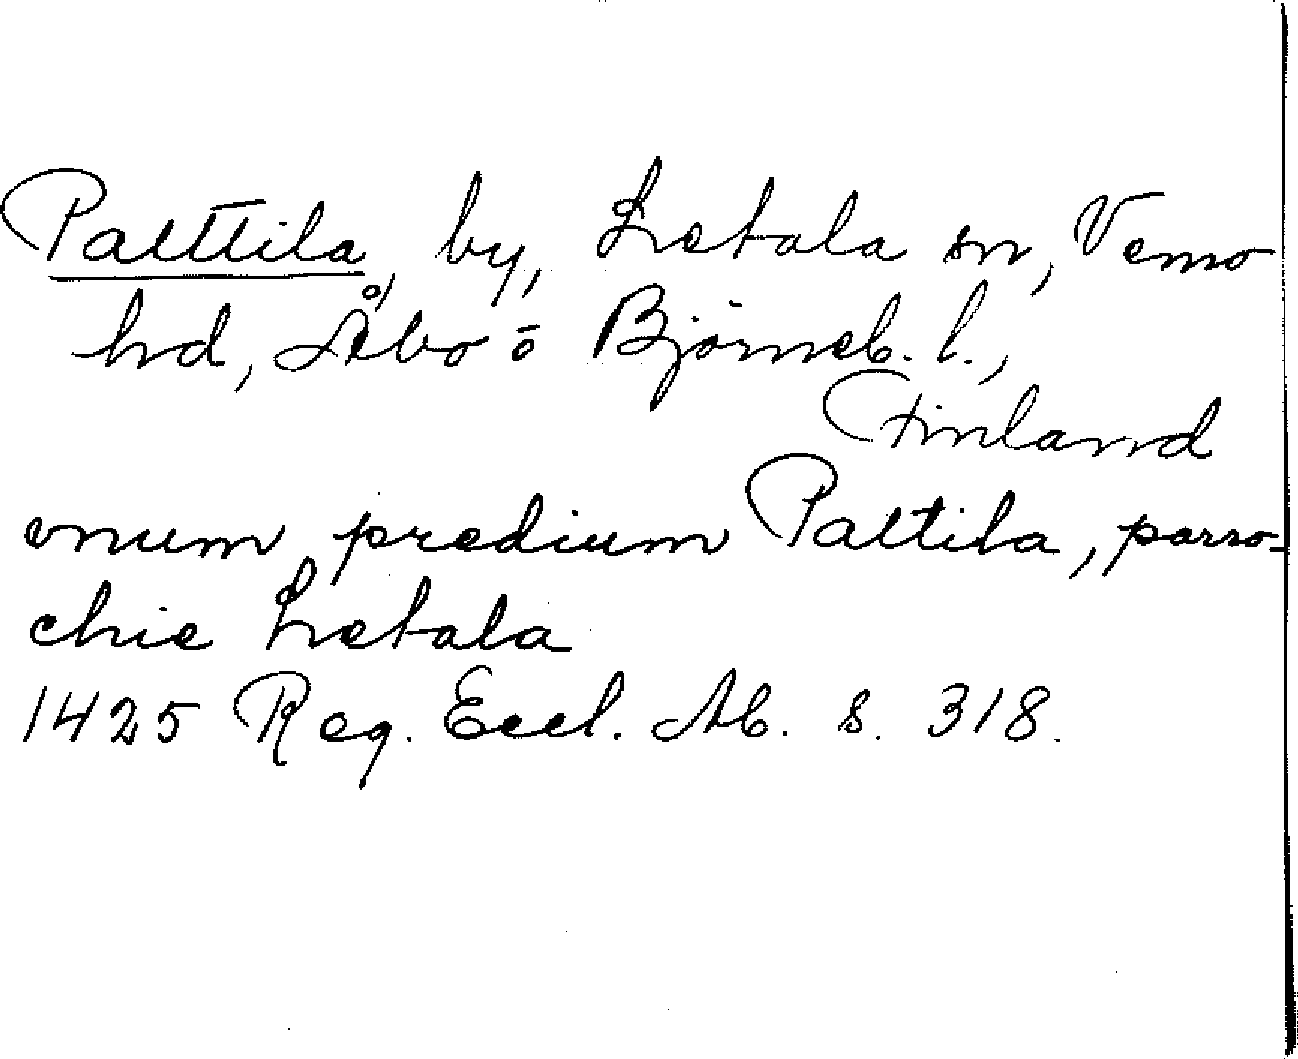 Palttila, by, Letala sn, Vemo
hd, Åbo o Björneb. l.,
Finland
vnum predium Paltila, parro-
chie Letala
1425 Reg. Eccl. Ab. s. 318.